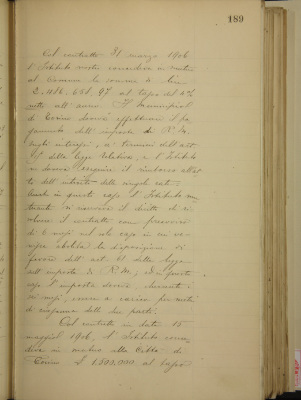 189
Col contratto 31 marzo 1906
l'Istituto nostro concedeva a mutuo
al Comune la somma di Lire
2.016.658.97 al tasso del 4%
netto all'anno. Il Municipio
di Torino dovrà effettuare il pa
gamento dell'imposta di R. M.
sugli interessi, ai termini dell'art
della legge relativa, e l'Istituto
ne dovrà eseguire il rimborso all'at
to dell'interesse delle singole rate.
in questo caso l'Istituto mu
tuante si riserva il diritto di ri
solvere il contratto con preavviso
di 6 mesi nel solo caso in cui ve
nisse abolita la disposizione di
favore dell'art. della legge
sull'imposta di R. M.; ed in questo
caso l'imposta dovrà, durante i
sei mesi, essere a carico per metà
di ciascuna delle due parti.
Col contratto in data 15
maggio 1906, l'Istituto conce
deva in mutuo alla Città di
Torino L. 1.500.000 al tasso